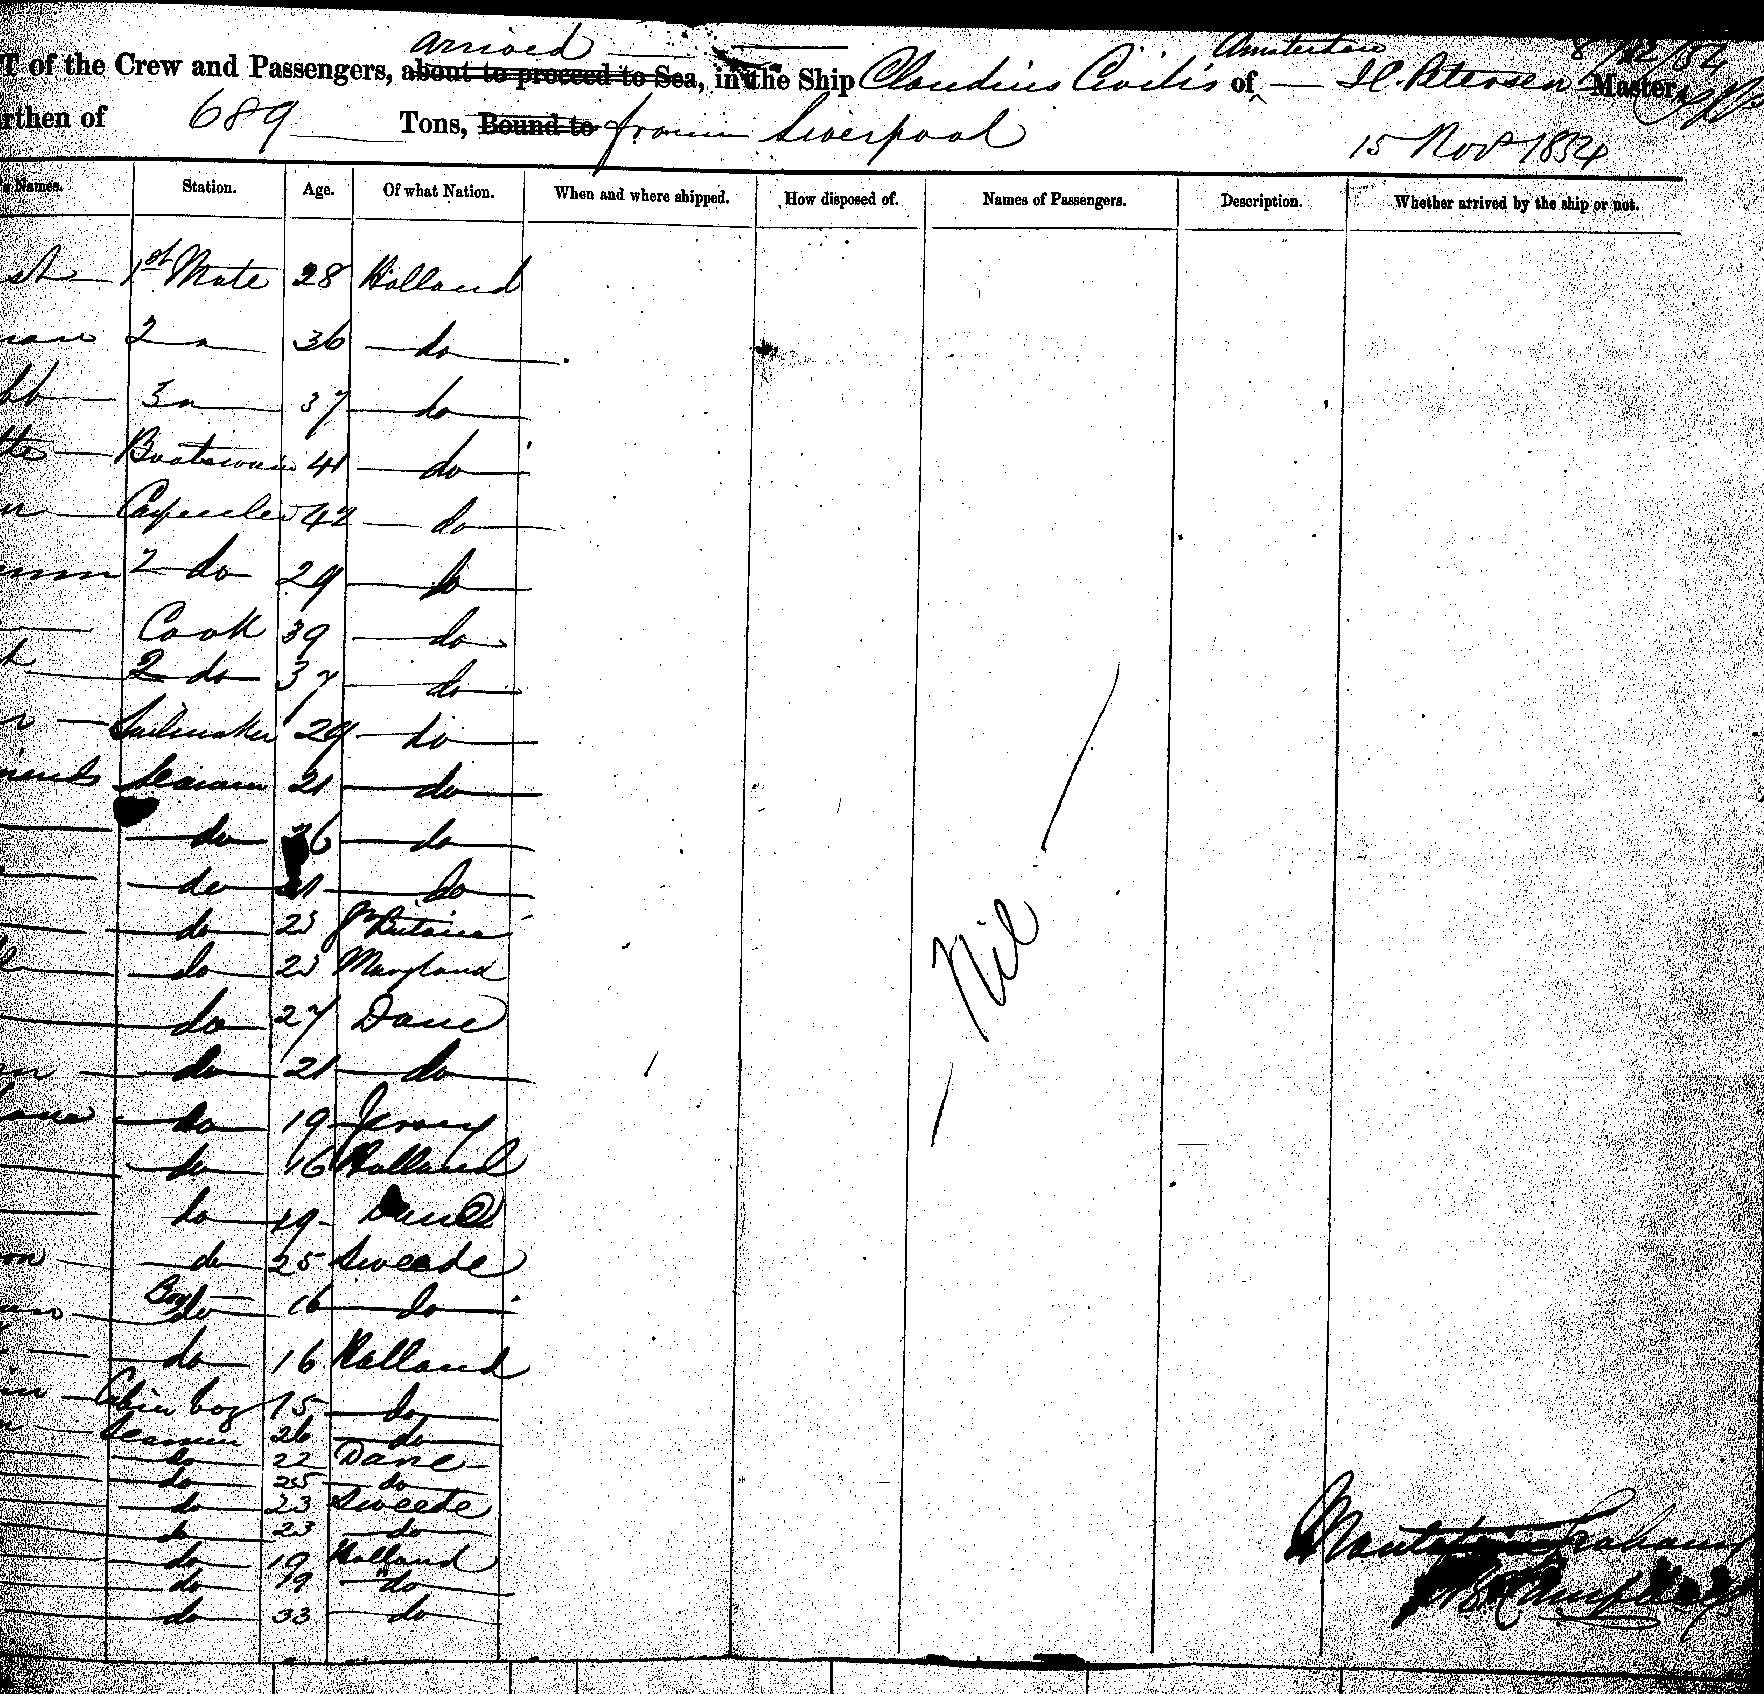 arrived
T of the Crew and Passengers, about to proceed to Sea, in the Ship Claudius Civilis of Amsterdam Petersen Master,
rthen of 689 Tons, Bound to from Liverpool 15 Nov 1854
Names. Station. Age. Of what Nation. When and where shipped. How disposed of. Names of Passengers. Description. Whether arrived by the ship or not.
1st Mate 28 Holland
2 " 36 do
3 " 37 do
Boatswain 41 do
Carpenter 42 do
2 do 29 do
Cook 39 do
2 do 37 do
Sailmaker 29 do
Seaman 21 do
do 26 do
do 21 do
do 23 Gr Britain
do 23 Maryland
do 27 Dane
do 21 do
do 19 Jersey
do 16 Holland
do 19 Dane
do 25 Sweede
Boy do 16 do
do 16 Holland
Cabin boy 15 do
Seaman 26 do
do 22 Dane
do 25 do
do 23 Sweede
do 23 do
do 19 Holland
do 19 do
do 33 do
Nil
Graham